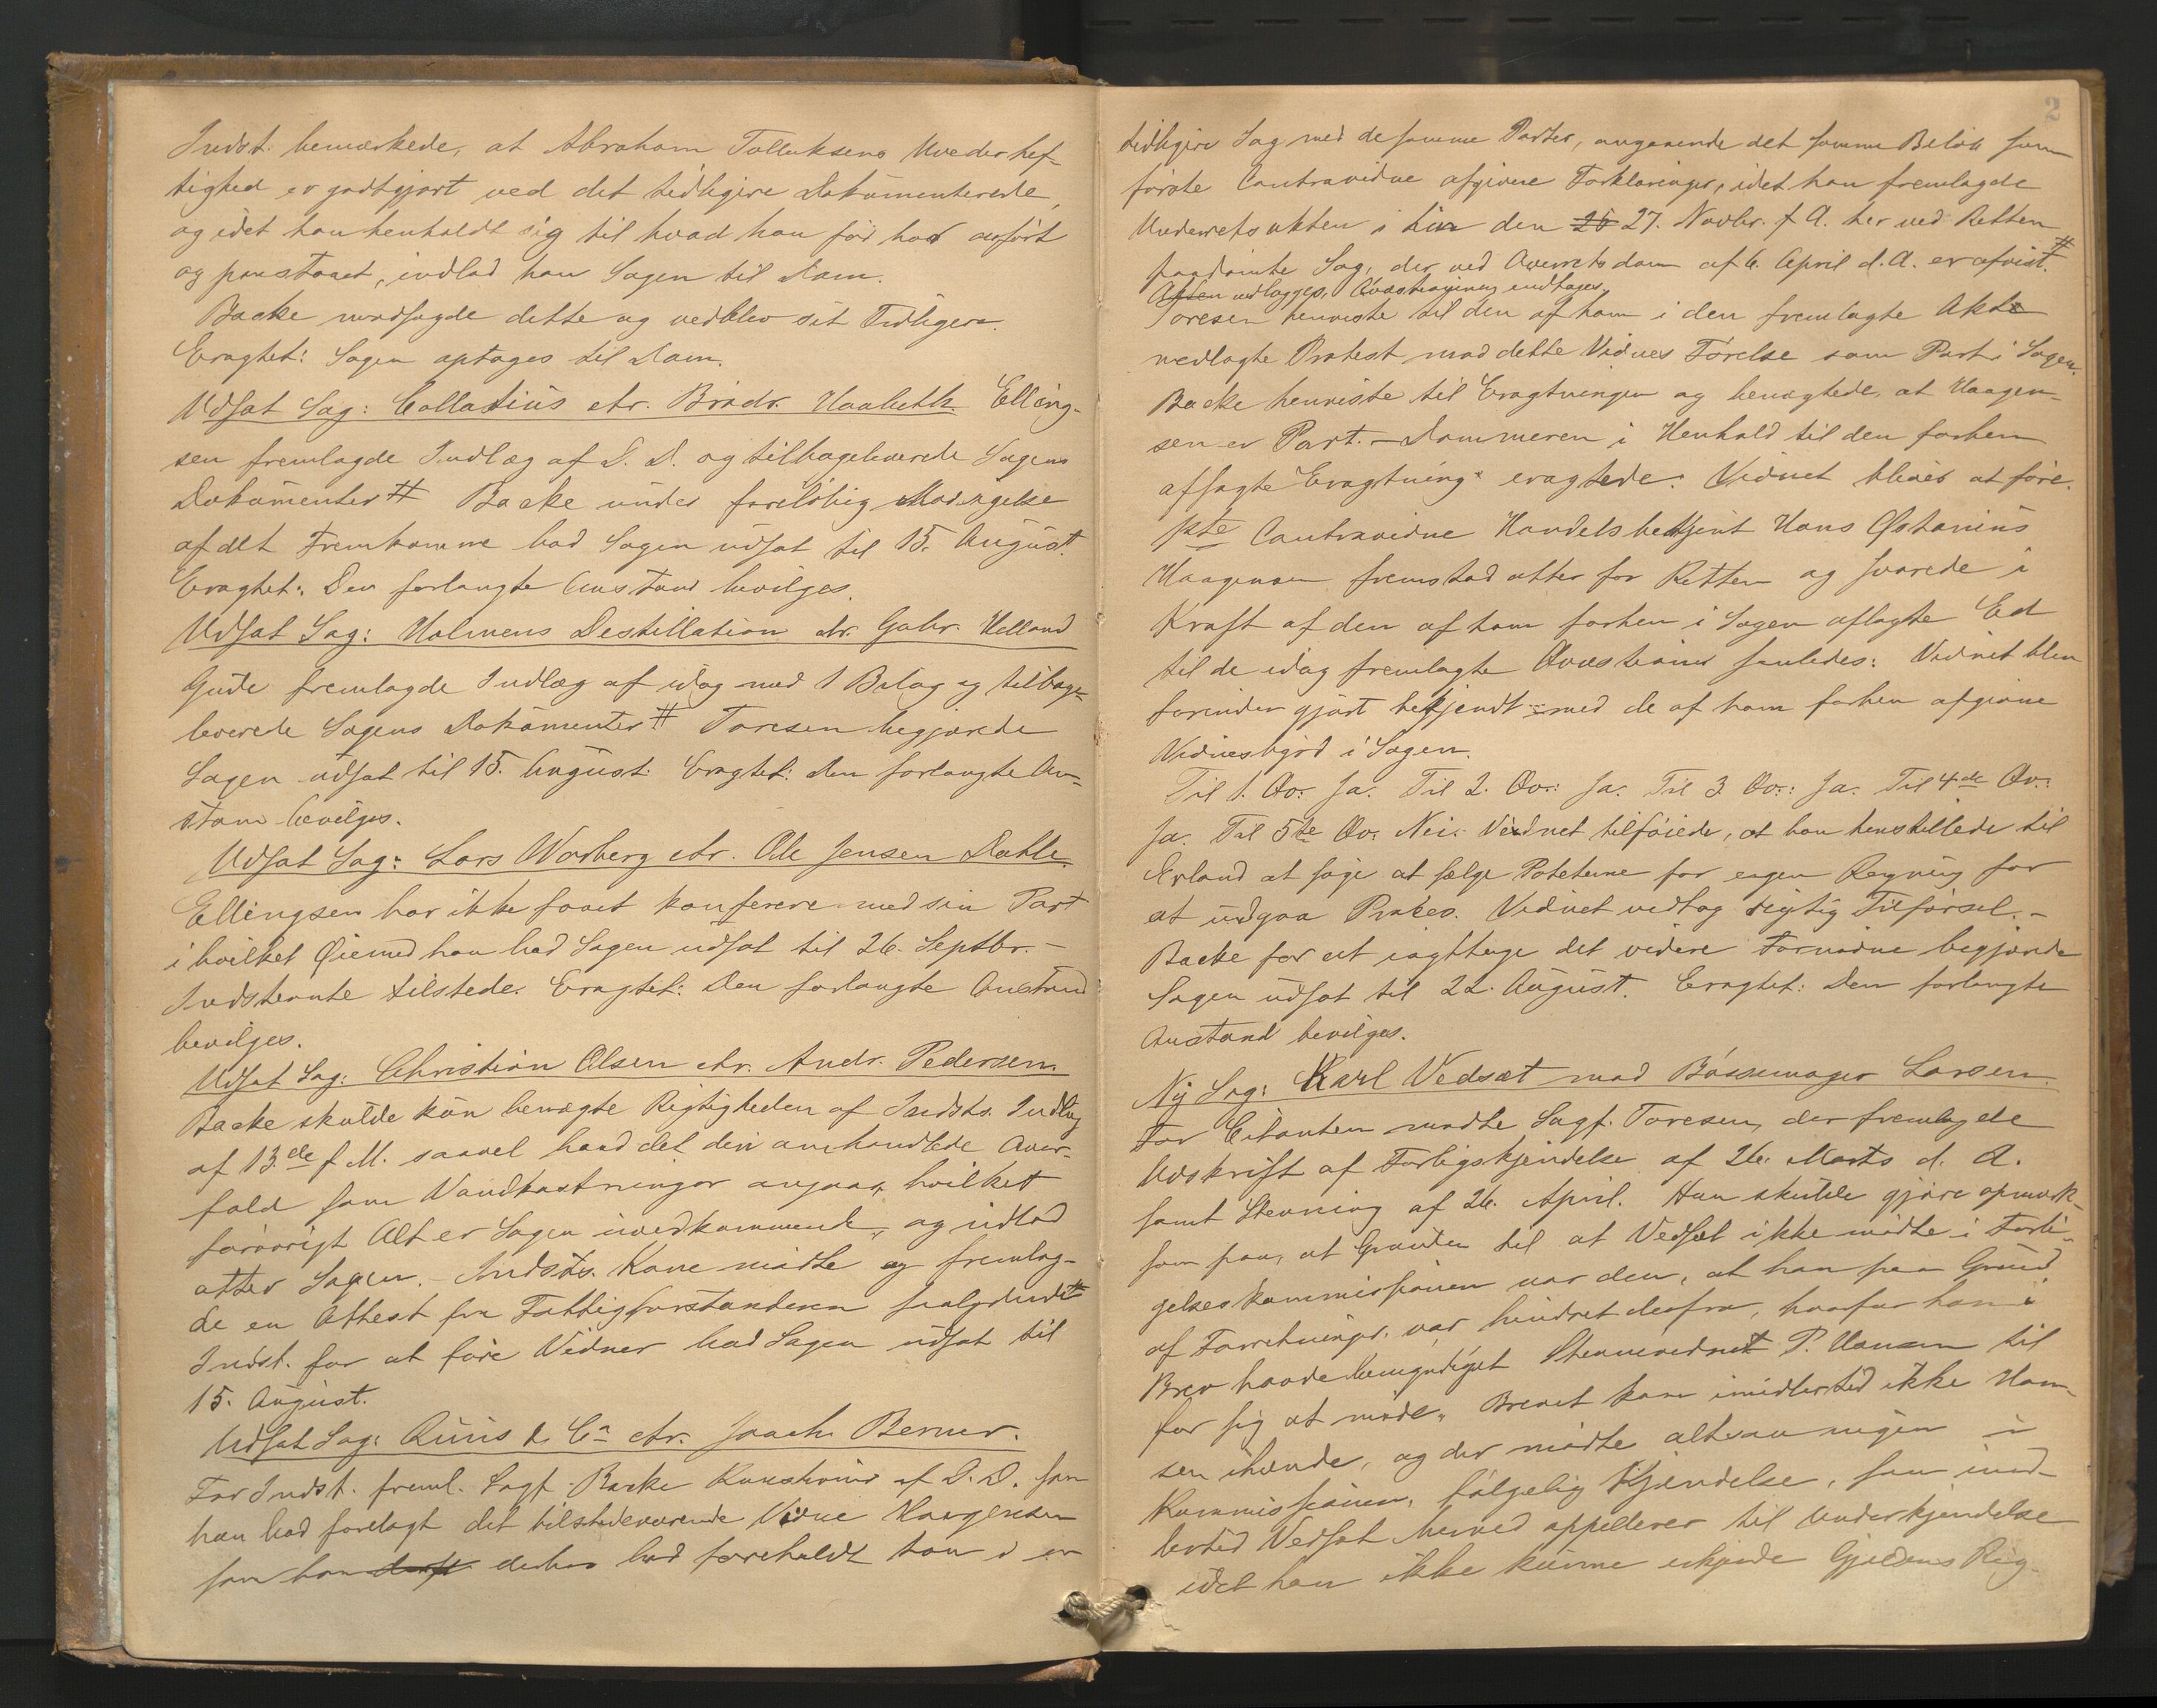 Indst. bemærkede, at Abraham Tollaksens Uvederhef-
tighed er godtgjort ved det tidligere Dokumenterede,
og idet han henholdt sig til hvad han før har anført
og paastaaet, indlod han Sagen til Dom.
Backe modsagde dette og vedblev sit Tidligere.
Eragtet: Sagen optages til Dom.
Udsat Sag: Collatius ctr. Brødr. Haabeth. Elling-
sen fremlagde Indlæg af D. D. og tilbageleverede Sagens
Dokumenter # Backe under foreløbig Modsigelse
af det Fremkomne bad Sagen udsat til 15. August.
Eragtet: Den forlangte Anstand bevilges.
Udsat Sag: Holmens Destillation ctr. Gabr. Helland
Gude fremlagde Indlæg af idag med 1 Bilag og tilbage-
leverede Sagens Dokumenter # Toresen begjærede
Sagen udsat til 15. August. Eragtet: Den forlangte An-
stand bevilges.
Udsat Sag: Lars Warberg ctr. Ole Jensen Dahle.
Ellingsen har ikke faaet konferere med sin Part
i hvilket Øiemed han bad Sagen udsat til 26. Septbr. -
Indstevnte tilstede. Eragtet: Den forlangte Anstand
bevilges.
Udsat Sag: Christian Olsen ctr. Andr. Pedersen.
Backe skulde kun benægte Rigtigheden af Indsts. Indlæg
af 13de f. M. saavel hvad det deri omhandlede Over-
fald som Vandkastninger angaar, hvilket
forøvrigt Alt er Sagen uvedkommende, og indlod
atter Sagen. - Indsts. Kone mødte og fremlag-
de en Attest fra Fattigforstanderen saalydende #
Indst. for at føre Vidner bad Sagen udsat til
15. August.
Udsat Sag: & Co ctr. Joach. Berner.
For Indst. freml. Sagf. Backe Kvæstioner af D. D. som
han bad forelagt det tilstedeværende Vidne Haagensen
som han derhos bad foreholdt han i en
2
tidligere Sag med de samme Parter, angaaende det samme Beløb som
første Contravidne afgivne Forklaringer, idet han fremlagde
Underretsakten i hin den 27. Novbr. f. A. her ved Retten
paadømte Sag, der ved Overretsdom af 6. April d. A. er afvist. #
Akten vedlægges, Qvæstionerne indtages.
Toresen henviste til den af ham i den fremlagte Akt
nedlagte Protest mod dette Vidnes Førelse som Part i Sagen.
Backe henviste til Eragtningen og benægtede, at Haagen-
sen er Part. - Dommeren i Henhold til den forhen
afsagte Eragtning eragtede: Vidnet bliver at føre.
1ste Contravidne Handelsbetjent Hans Østanius
Haagensen fremstod atter for Retten og svarede i
Kraft af den af ham forhen i Sagen aflagte Ed
til de idag fremlagte Qvæstioner saaledes: Vidnet blev
forinden gjort bekjendt med de af ham forhen afgivne
Vidnesbyrd i Sagen.
Til 1. Qv: Ja. Til 2. Qv: Ja. Til 3 Qv: Ja. Til 4de Qv:
Ja. Til 5te Qv: Nei. Vidnet tilføiede, at han henstillede til
Erland at søge at sælge Poteterne for egen Regning for
at undgaa Proces. Vidnet vedtog rigtig Tilførsel. -
Backe for at iagttage det videre Fornødne begjærede
Sagen udsat til 22. August. Eragtet: Den forlangte
Anstand bevilges.
Ny Sag: Karl Vedsæt mod Bøssemager Larsen.
For Citanten mødte Sagf. Toresen, der fremlagde
Udskrift af Forligskjendelse af 26. Marts d. A.
samt Stevning af 26. April. Han skulde gjøre opmærk-
som paa, at Grunden til at Vedsæt ikke mødte i Forli-
gelseskommissionen var den, at han paa Grund
af Forretninger var hindret derfra, hvorfor han i
Brev havde bemyndiget Stevnevidnet P. Hansen til
for sig at møde. Brevet kom imidlertid ikke Han-
sen ihænde, og der mødte altsaa ingen i
Kommissionen, følgelig Kjendelse, som imid-
lertid Vedsæt herved appellerer til Underkjendelse
idet han ikke kunne erkjende Gjeldens Rig-